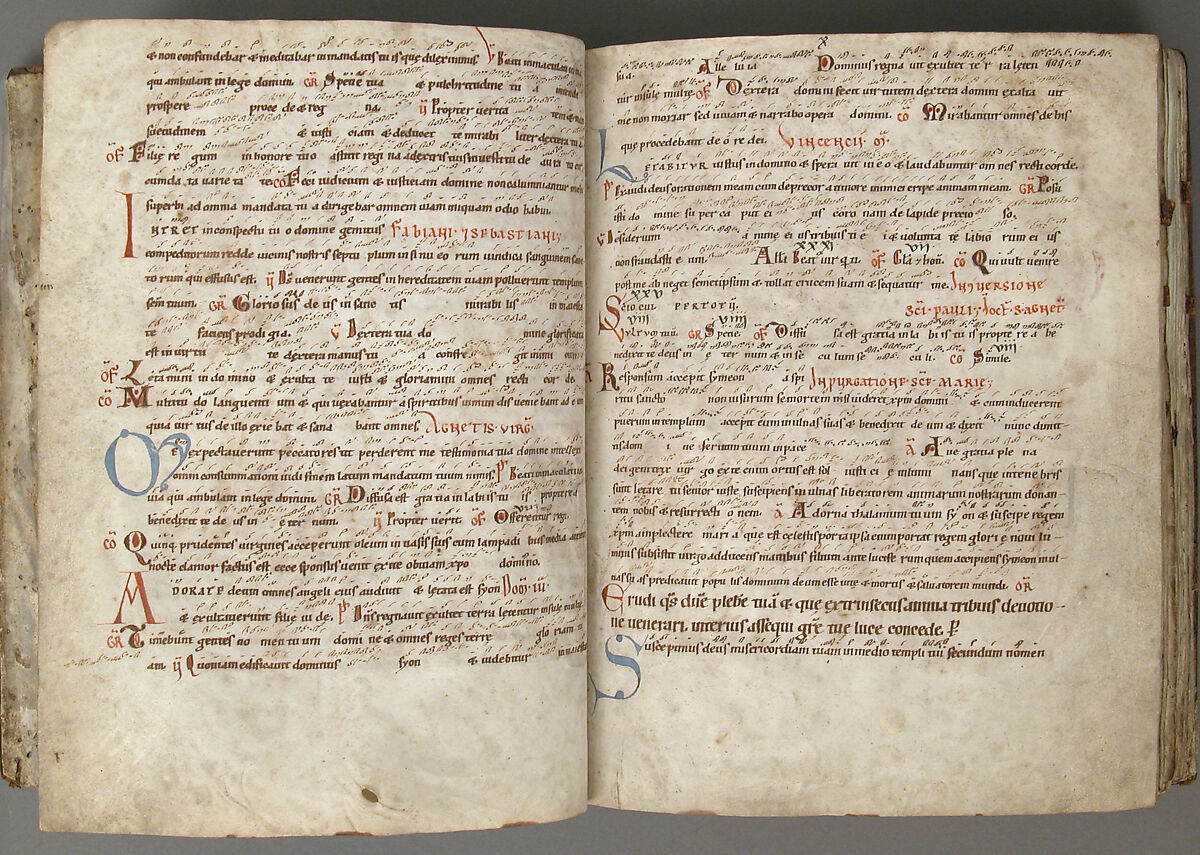 & non confundebar & meditabar in mandatis tuis que dilexi nimis Beati immaculati in uia
qui ambulant in lege domini. GR Specie tua & pulchritudine tu a intende
prospere procede & reg na. Propter verita tem & man
suetudinem & iusti ciam & deducet te mirabi liter dextera tua
OF Filie re gum in honore tuo astitit regina a dextris tuis in uestitu de aura to cir
cumda ta varie ta te CO Feci iudicium & iusticiam domine non calumnientur michi
superbi ad omnia mandata tua dirigebar omnem uiam iniquam odio habui.
INTRET in conspectu tuo domine gemitus FABIANI & SEBASTIANI
compeditorum redde uicinis nostris septu plum in sinu eo rum uindica sanguinem sanc
to rum qui effusus est. Ds uenerunt gentes in hereditatem tuam polluerunt templum
GR Glorio sus de us in sanc tis mirabi lis in maiesta
te faciens prodi gia. Dextera tua do mine glorificata
est in uirtu te dextera manus tu a confre git inimi
OF Letamini in domino & exulta te iusti & gloriamini omnes recti cor de
CO Multitu do languenti um & qui uexabantur a spiritibus inmun dis uenie bant ad e um
quia uir tus de illo exie bat & sana bant omnes. AGNETIS VIRG
ME expectauerunt peccatores ut perderent me testimonia tua domine intellexi
omni consummationi uidi finem latum mandatum tuum nimis. Beati inmaculati in
uia qui ambulant in lege domini. GR Diffusa est gratia in labiis tu is propterea
benedixit te de us in e ter num. Propter verit. OF Offerentur regi.
CO Quinq; prudentes virgines acceperunt oleum in uasis suis cum lampadi bus media autem
nocte clamor factus est ecce sponsus uenit exite obuiam xpo domino.
ADORATE deum omnes angeli eius audiuit & letata est syon DOM. III.
& exultauerunt filie iu de. P Dns regnauit exultet terra letentur insule multe.
GR Timebunt gentes no men tuum domi ne & omnes reges terre glo riam tu
am. Quoniam edificauit dominus syon & uidebitur in maiestate
sua. Alle lu ia Dominus regna uit exultet te r ra leten
tur insule multe. OF Dextera domini fecit uirtutem dextera domini exalta uit
me non moriar sed uiuam & narrabo opera domini. CO Mirabantur omnes de his
que procedebant de o re dei. VINCENCII M.
LETABITUR iustus in domino & spera uit in eo & laudabuntur omnes recti corde.
P Exaudi deus orationem meam cum deprecor a timore inimici eripe animam meam. GR Posu
isti do mine su per ca put ei us coro nam de lapide precio so.
Desiderium anime ei us tribuisti ei & volunta te labio rum ei us
non fraudasti e um. XXXI Alla Beat uir q. ti. OF Gla & hon. VII CO Qui uult uenire
post me ab neget semetipsum & tollat crucem suam & sequatur me. IN CONVERSIONE
XXV Scio cui PERTOTII. SCI PAULI & OCT. S. AGNET
VIII Vultum tuu VIII GR Specie OF Diffu sa est gratia in la bi is tu is propte re a be
nedixit te deus in e ter num & in se cu lum se cu li. CO VIII Simile
Responsum accepit symeon a spi IN PURGATIONE SCE MARIE;
ritu sancto non uisurum se mortem nisi uideret xpm domini & cum inducerent
puerum in templum accepit eum in ulnas suas & benedixit de um & dixit nunc dimit-
tis dom i ne seruum tuum in pace A Aue gratia ple na
dei genitrix uir go ex te enim ortus est sol iusti ci e inlumi nans que in tenebris
sunt letare tu senior iuste suscipiens in ulnas liberatorem animarum nostrarum donan-
tem nobis & resurrecti o nem. A Adorna thalamum tuum sy on & suscipe regem
xpm amplectere mari a que est celestis porta ipsa enim portat regem glori e noui lu-
minis subsistit uirgo adducens manibus filium ante luciferum quem accipiens symeon in ul-
nas su as predicauit popu lis dominum deum esse uite & mortis & saluatorem mundi. OR
Erudi qs dne plebe tua & que extrinsecus annua tribuis deuotio-
ne venerari. interius assequi gre tue luce concede. P
Suscepimus deus misericordiam tuam in medio templi tui secundum nomen